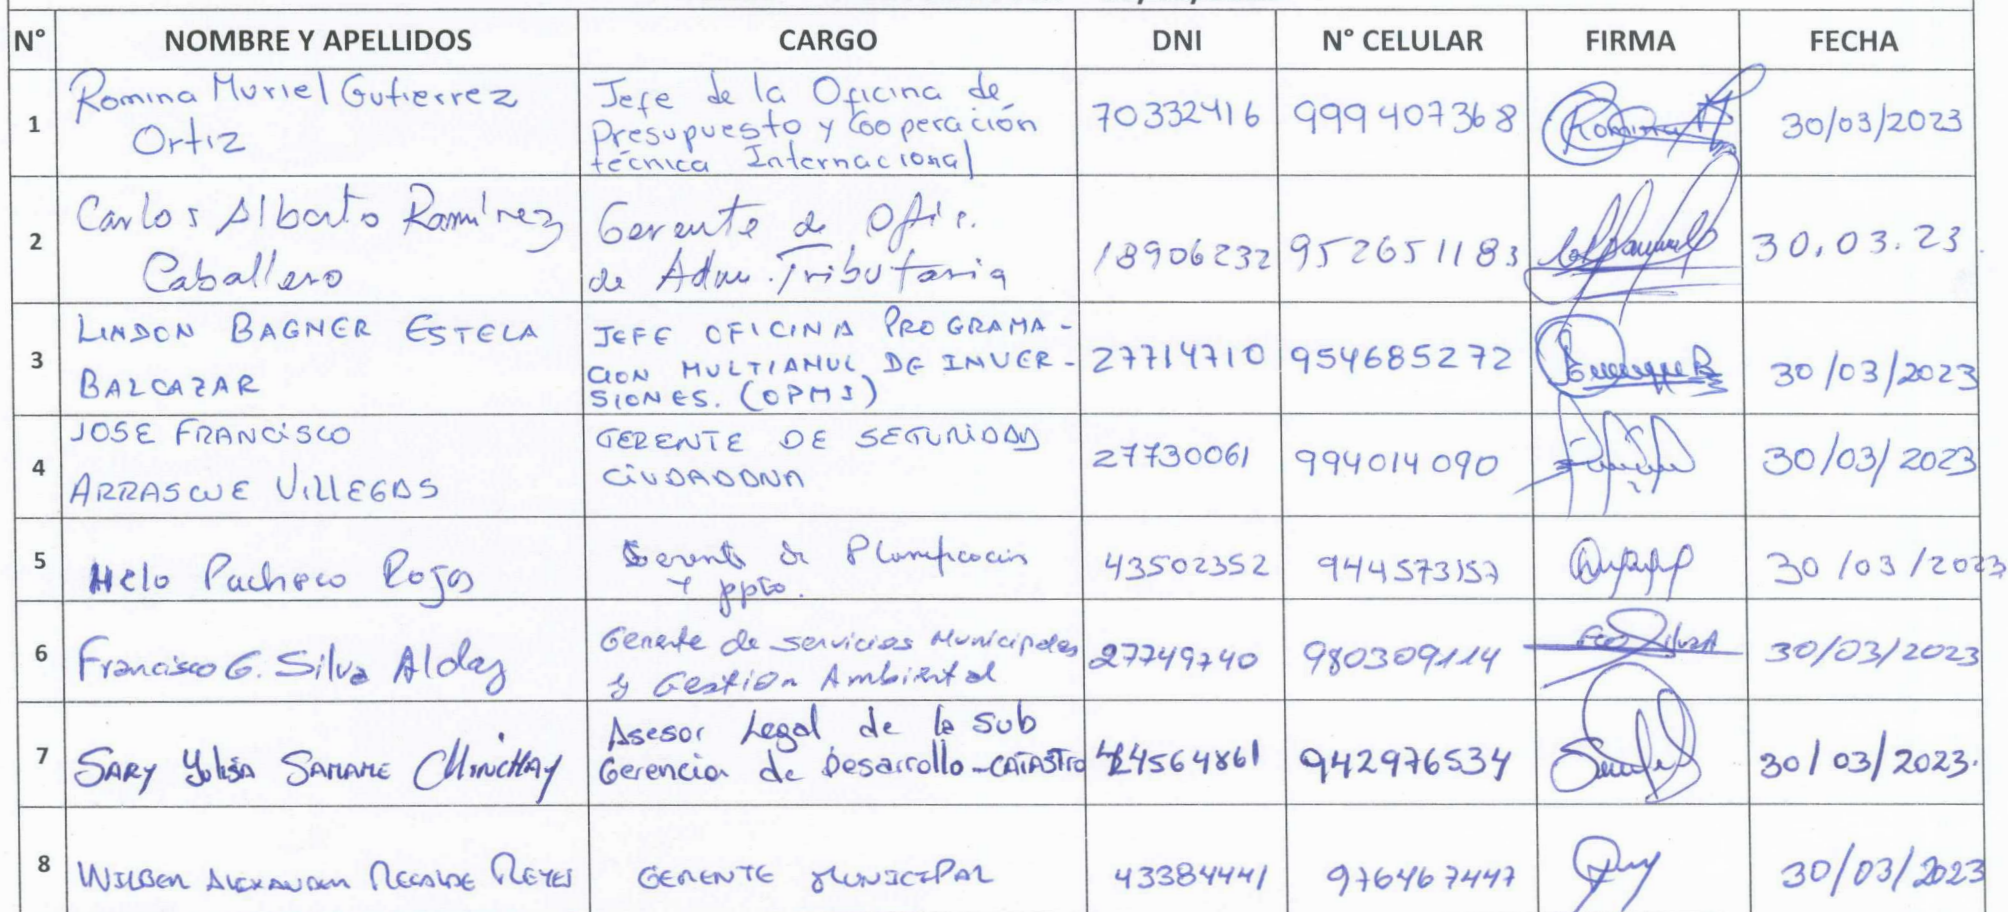 N° NOMBRE Y APELLIDOS CARGO DNI N° CELULAR FIRMA FECHA
1 Romina Muriel Gutierrez Ortiz Jefe de la Oficina de Presupuesto y Cooperación técnica Internacional 70332416 999407368 30/03/2023
2 Carlos Alberto Ramírez Caballero Gerente de Ofic. de Adm. Tributaria 18906232 952651183 30.03.23
3 LINDON BAGNER ESTELA BALCAZAR JEFE OFICINA PROGRAMA- CION MULTIANUL DE INVER- SIONES. (OPMI) 27714710 954685272 30/03/2023
4 JOSE FRANCISCO ARRASCUE VILLEGAS GERENTE DE SEGURIDAD CIUDADANA 27730061 994014090 30/03/2023
5 Helo Pacheco Rojas Gerente de Planificación y ppto. 43502352 944573157 30/03/2023
6 Francisco G. Silva Alday Gerente de servicios Municipales y Gestión Ambiental 27749740 980309114 30/03/2023
7 SARY Yulisa SAMAME CHINCHAY Asesor Legal de la Sub Gerencia de Desarrollo-CATASTRO 44564861 942976534 30/03/2023.
8 WILBER ALEXANDER RECALDE REYES GERENTE MUNICIPAL 43384441 976467447 30/03/2023